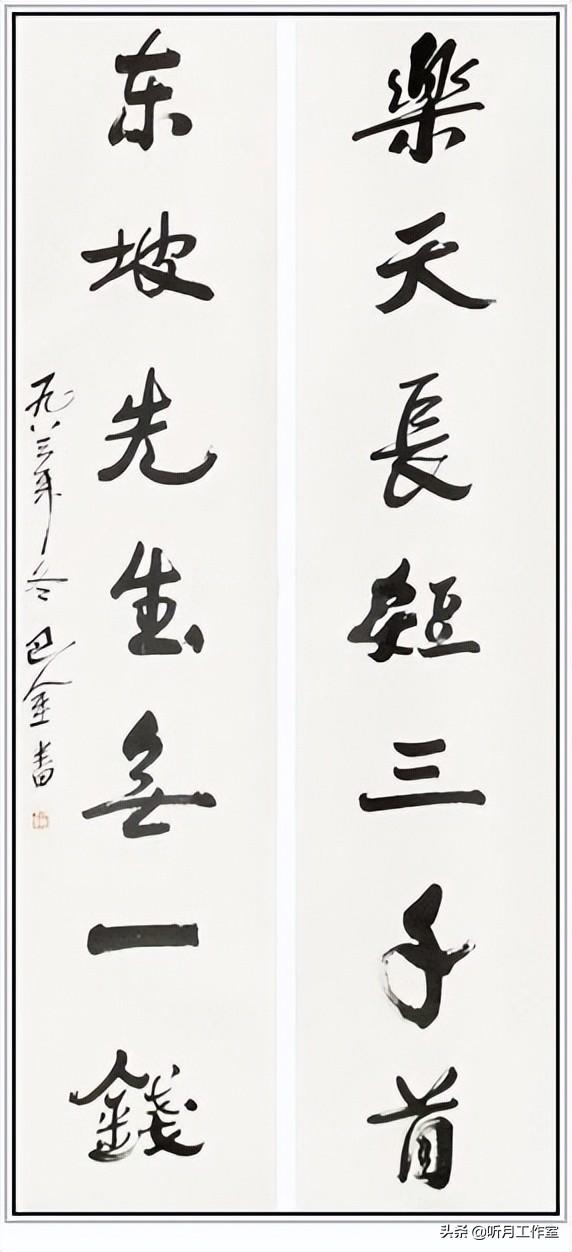 樂天長短三千首
东坡先生無一錢
一九八三年冬巴金書
头条 @听月工作室